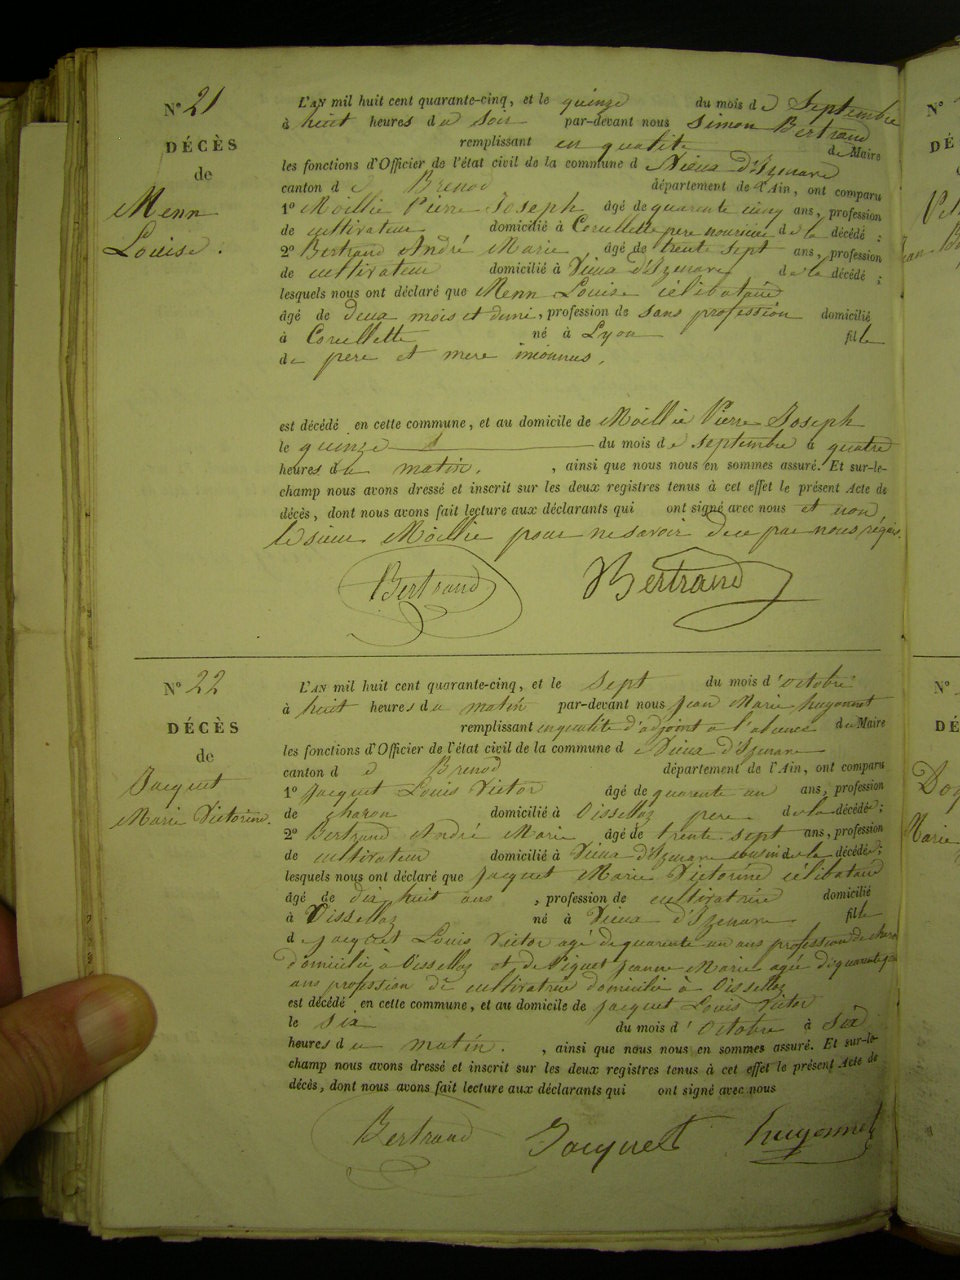 N° 21
DÉCÈS
de
Menn
Louise.
L'AN mil huit cent quarante-cinq, et le quinze du mois de Septembre
à huit heures du soir par-devant nous Simon Bertrand
remplissant en qualité de Maire
les fonctions d'Officier de l'état civil de la commune d e Vieux d'Izenave
canton d e Brenod département de l'Ain, ont comparu
1° Moillie Pierre Joseph âgé de quarante cinq ans, profession
de cultivateur domicilié à Corcellette pere nouricier de la décédé ;
2° Bertrand André Marie âgé de trente sept ans, profession
de cultivateur domicilié à Vieux d'Izenave de la décédé ;
lesquels nous ont déclaré que Menn Louise célibataire
âgé de deux mois et demi, profession de sans profession domicilié
à Corcellette né à Lyon fille
de pere et mere inconnus.
est décédé en cette commune, et au domicile de Moillie Pierre Joseph
le quinze du mois de septembre à quatre
heures du matin. , ainsi que nous nous en sommes assuré. Et sur-le-
champ nous avons dressé et inscrit sur les deux registres tenus à cet effet le présent Acte de
décès, dont nous avons fait lecture aux déclarants qui ont signé avec nous et non
le sieur Moillie pour ne savoir de ce par nous réquis.
Bertrand Bertrand
N° 22
DÉCÈS
de
Jacquet
Marie Victorine.
L'AN mil huit cent quarante-cinq, et le sept du mois d'octobre
à huit heures du matin par-devant nous Jean Marie hugonnet
remplissant en qualité d'adjoint a l'absence de Maire
les fonctions d'Officier de l'état civil de la commune d e Vieux d'Izenave
canton d e Brenod département de l'Ain, ont comparu
1° Jacquet Louis Victor âgé de quarante un ans, profession
de charon domicilié à Oissellaz pere de la décédé ;
2° Bertrand André Marie âgé de trente sept ans, profession
de cultivateur domicilié à Vieux d'Izenave cousin de la décédé ;
lesquels nous ont déclaré que Jacquet Marie Victorine célibataire
âgé de dix huit ans , profession de cultivatrice domicilié
à Oissellaz né à Vieux d'Izenave fille
de Jacquet Louis Victor agé de quarante un ans profession de charon
domicilié à Oissellaz et de Piquet Jeanne Marie agée de quarante
ans profession de cultivatrice domicilié à Oissellaz
est décédé en cette commune, et au domicile de Jacquet Louis Victor
le six du mois d'Octobre à six
heures du matin. , ainsi que nous nous en sommes assuré. Et sur-le-
champ nous avons dressé et inscrit sur les deux registres tenus à cet effet le présent Acte de
décès, dont nous avons fait lecture aux déclarants qui ont signé avec nous
Bertrand Jacquet hugonnet